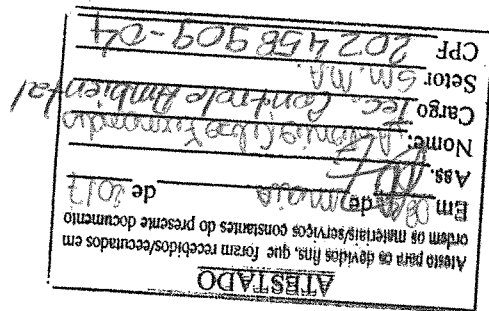 ATESTADO
Atesto para os devidos fins, que foram recebidos/executados em
ordem os materiais/serviços constantes do presente documento
Em 08 de maio de 2017
Ass.
Nome: Antonio
Cargo Tec. Controle Ambiental
Setor SM.MA.
CPF 202458909-04